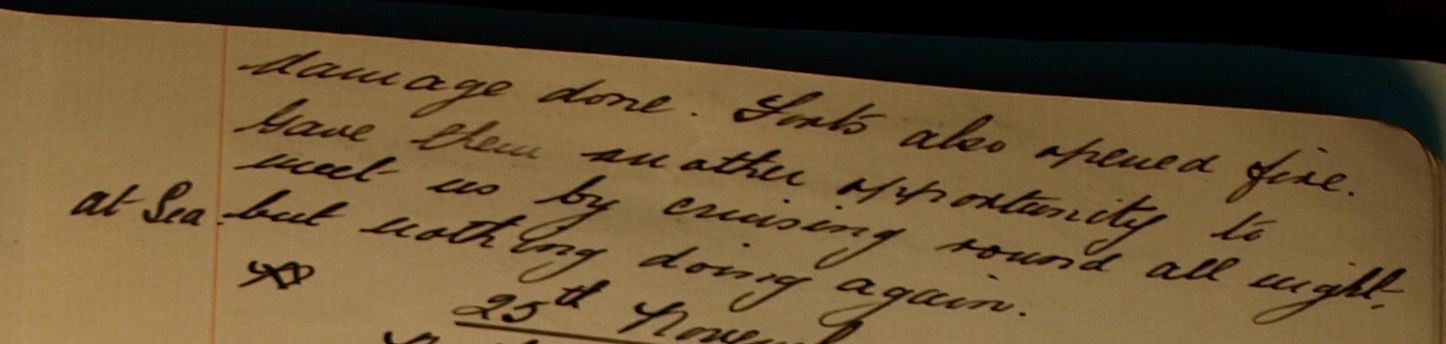 damage done. Forts also opened fire.
Gave them another opportunity to
meet us by cruising round all night,
at Sea. but nothing doing again.
25th